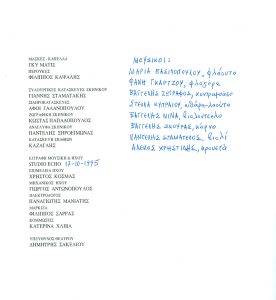 ΜΑΣΚΕΣ - ΚΑΠΕΛΛΑ
ΓΚΥ ΜΑΤΙΣ
ΠΕΡΟΥΚΕΣ
ΦΙΛΙΠΠΟΣ ΚΑΨΑΛΗΣ
ΞΥΛΟΥΡΓΙΚΕΣ ΚΑΤΑΣΚΕΥΕΣ ΣΚΗΝΙΚΟΥ
ΓΙΑΝΝΗΣ ΣΤΑΜΑΤΑΚΗΣ
ΣΙΔΗΡΟΚΑΤΑΣΚΕΥΕΣ
ΑΦΟΙ ΓΑΛΑΝΟΠΟΥΛΟΥ
ΖΩΓΡΑΦΙΚΗ ΣΚΗΝΙΚΟΥ
ΚΩΣΤΑΣ ΠΑΠΑΔΟΠΟΥΛΟΣ
ΑΝΑΓΛΥΦΑ ΣΚΗΝΙΚΟΥ
ΠΑΝΤΕΛΗΣ
ΚΑΤΑΣΚΕΥΗ
ΚΑΖΑΓΛΗΣ
ΕΓΓΡΑΦΗ ΜΟΥΣΙΚΗΣ & ΗΧΟΥ
STUDIO ECHO 17-10-1995
ΕΠΙΜΕΛΕΙΑ ΗΧΟΥ
ΧΡΗΣΤΟΣ ΚΟΣΜΑΣ
ΜΗΧΑΝΙΚΟΣ ΗΧΟΥ
ΓΙΩΡΓΟΣ ΑΝΤΩΝΟΠΟΥΛΟΣ
ΗΛΕΚΤΡΟΛΟΓΟΣ
ΠΑΝΑΓΙΩΤΗΣ ΜΑΝΙΑΤΗΣ
ΜΑΚΕΤΑ
ΦΙΛΙΠΠΟΣ ΣΑΡΡΑΣ
ΚΟΜΜΩΣΕΙΣ
ΚΑΤΕΡΙΝΑ ΧΛΙΠΑ
ΥΠΕΥΘΥΝΟΣ ΘΕΑΤΡΟΥ
ΔΗΜΗΤΡΗΣ ΣΑΚΕΛΙΟΥ
ΜΟΥΣΙΚΟΙ:
ΜΑΡΙΑ ΒΑΣΙΛΟΠΟΥΛΟΥ, φλάουτο
ΦΑΝΗ ΓΚΑΡΤΖΟΥ, φλογέρα
ΒΑΓΓΕΛΗΣ ΖΩΓΡΑΦΟΣ, κοντραμπάσο
ΣΤΕΛΛΑ ΚΥΠΡΑΙΟΥ,
ΒΑΓΓΕΛΗΣ ΝΙΝΑ, βιολοντσέλο
ΒΑΓΓΕΛΗΣ ΣΚΟΥΡΑΣ, κόρνο
ΠΑΝΤΕΛΗΣ ΣΤΑΜΑΤΕΛΟΣ, βιολί
ΑΛΕΚΟΣ ΧΡΗΣΤΙΔΗΣ, κρουστά